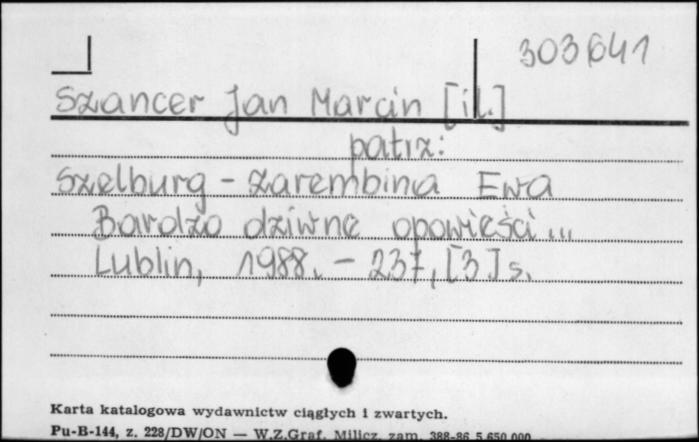 303641
Szancer Jan Marcin [il.]
patrz:
Szelburg-Zarembina Ewa
Bardzo dziwne opowieści...
Lublin, 1988. - 237, [3] s.
Karta katalogowa wydawnictw ciągłych i zwartych.
Pu-B-144, z. 228/DW/ON — W.Z.Graf. Milicz, zam. 388-86 5.650.000